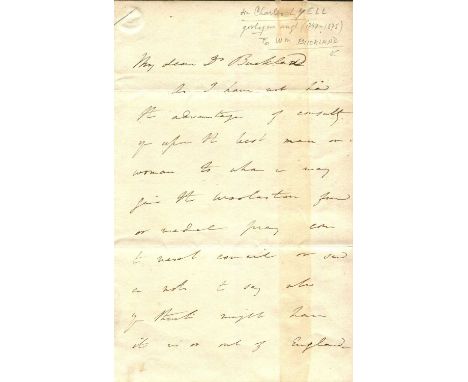 Sir Charles LYELL
geologue angl (1797-1875)
To Wm BUCKLAND
My dear Dr Buckland
As I have not had
the advantage of consultg
you upon the best man or
woman to whom we may
give the Woolaston fund
or medal pray come
to next council or send
a note to say who
you think might have
it in or out of England